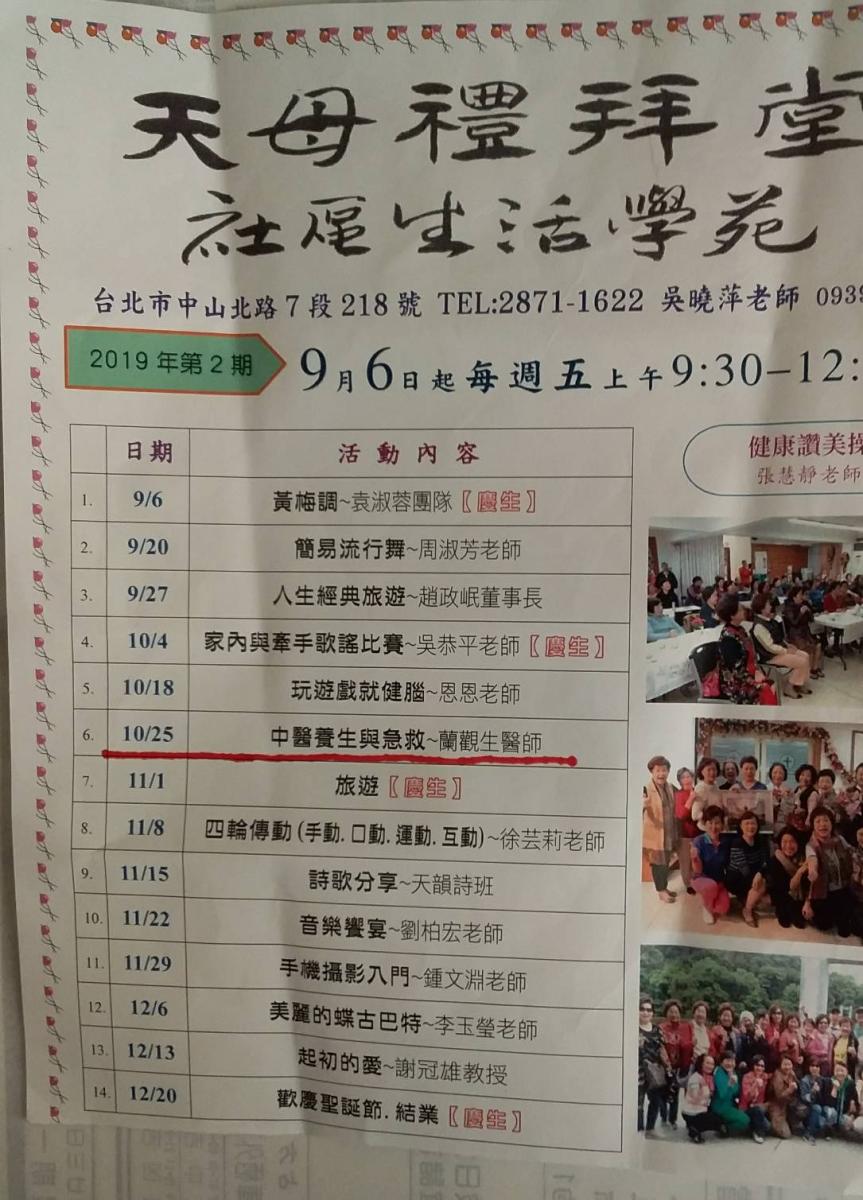 天母禮拜堂
社區生活學苑
台北市中山北路7段218號 TEL:2871-1622 吳曉萍老師 0939
2019年第2期
9月6日起每週五上午9:30-12:
日期 活動內容
1. 9/6 黃梅調~袁淑蓉團隊【慶生】
2. 9/20 簡易流行舞~周淑芳老師
3. 9/27 人生經典旅遊~趙政岷董事長
4. 10/4 家內與牽手歌謠比賽~吳恭平老師【慶生】
5. 10/18 玩遊戲就健腦~恩恩老師
6. 10/25 中醫養生與急救~蘭觀生醫師
7. 11/1 旅遊【慶生】
8. 11/8 四輪傳動(手動.口動.運動.互動)~徐芸莉老師
9. 11/15 詩歌分享~天韻詩班
10. 11/22 音樂饗宴~劉柏宏老師
11. 11/29 手機攝影入門~鍾文淵老師
12. 12/6 美麗的蝶古巴特~李玉瑩老師
13. 12/13 起初的愛~謝冠雄教授
14. 12/20 歡慶聖誕節.結業【慶生】
健康讚美操
張慧靜老師